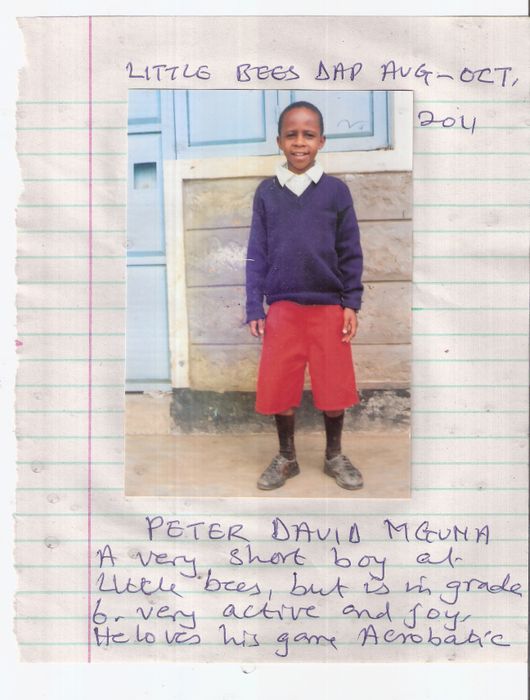 LITTLE BEES DAP AUG-OCT,
2011
PETER DAVID MGUNA
A very short boy at
Little bees, but is in grade
6. very active and joy,
He loves his game Acrobatic